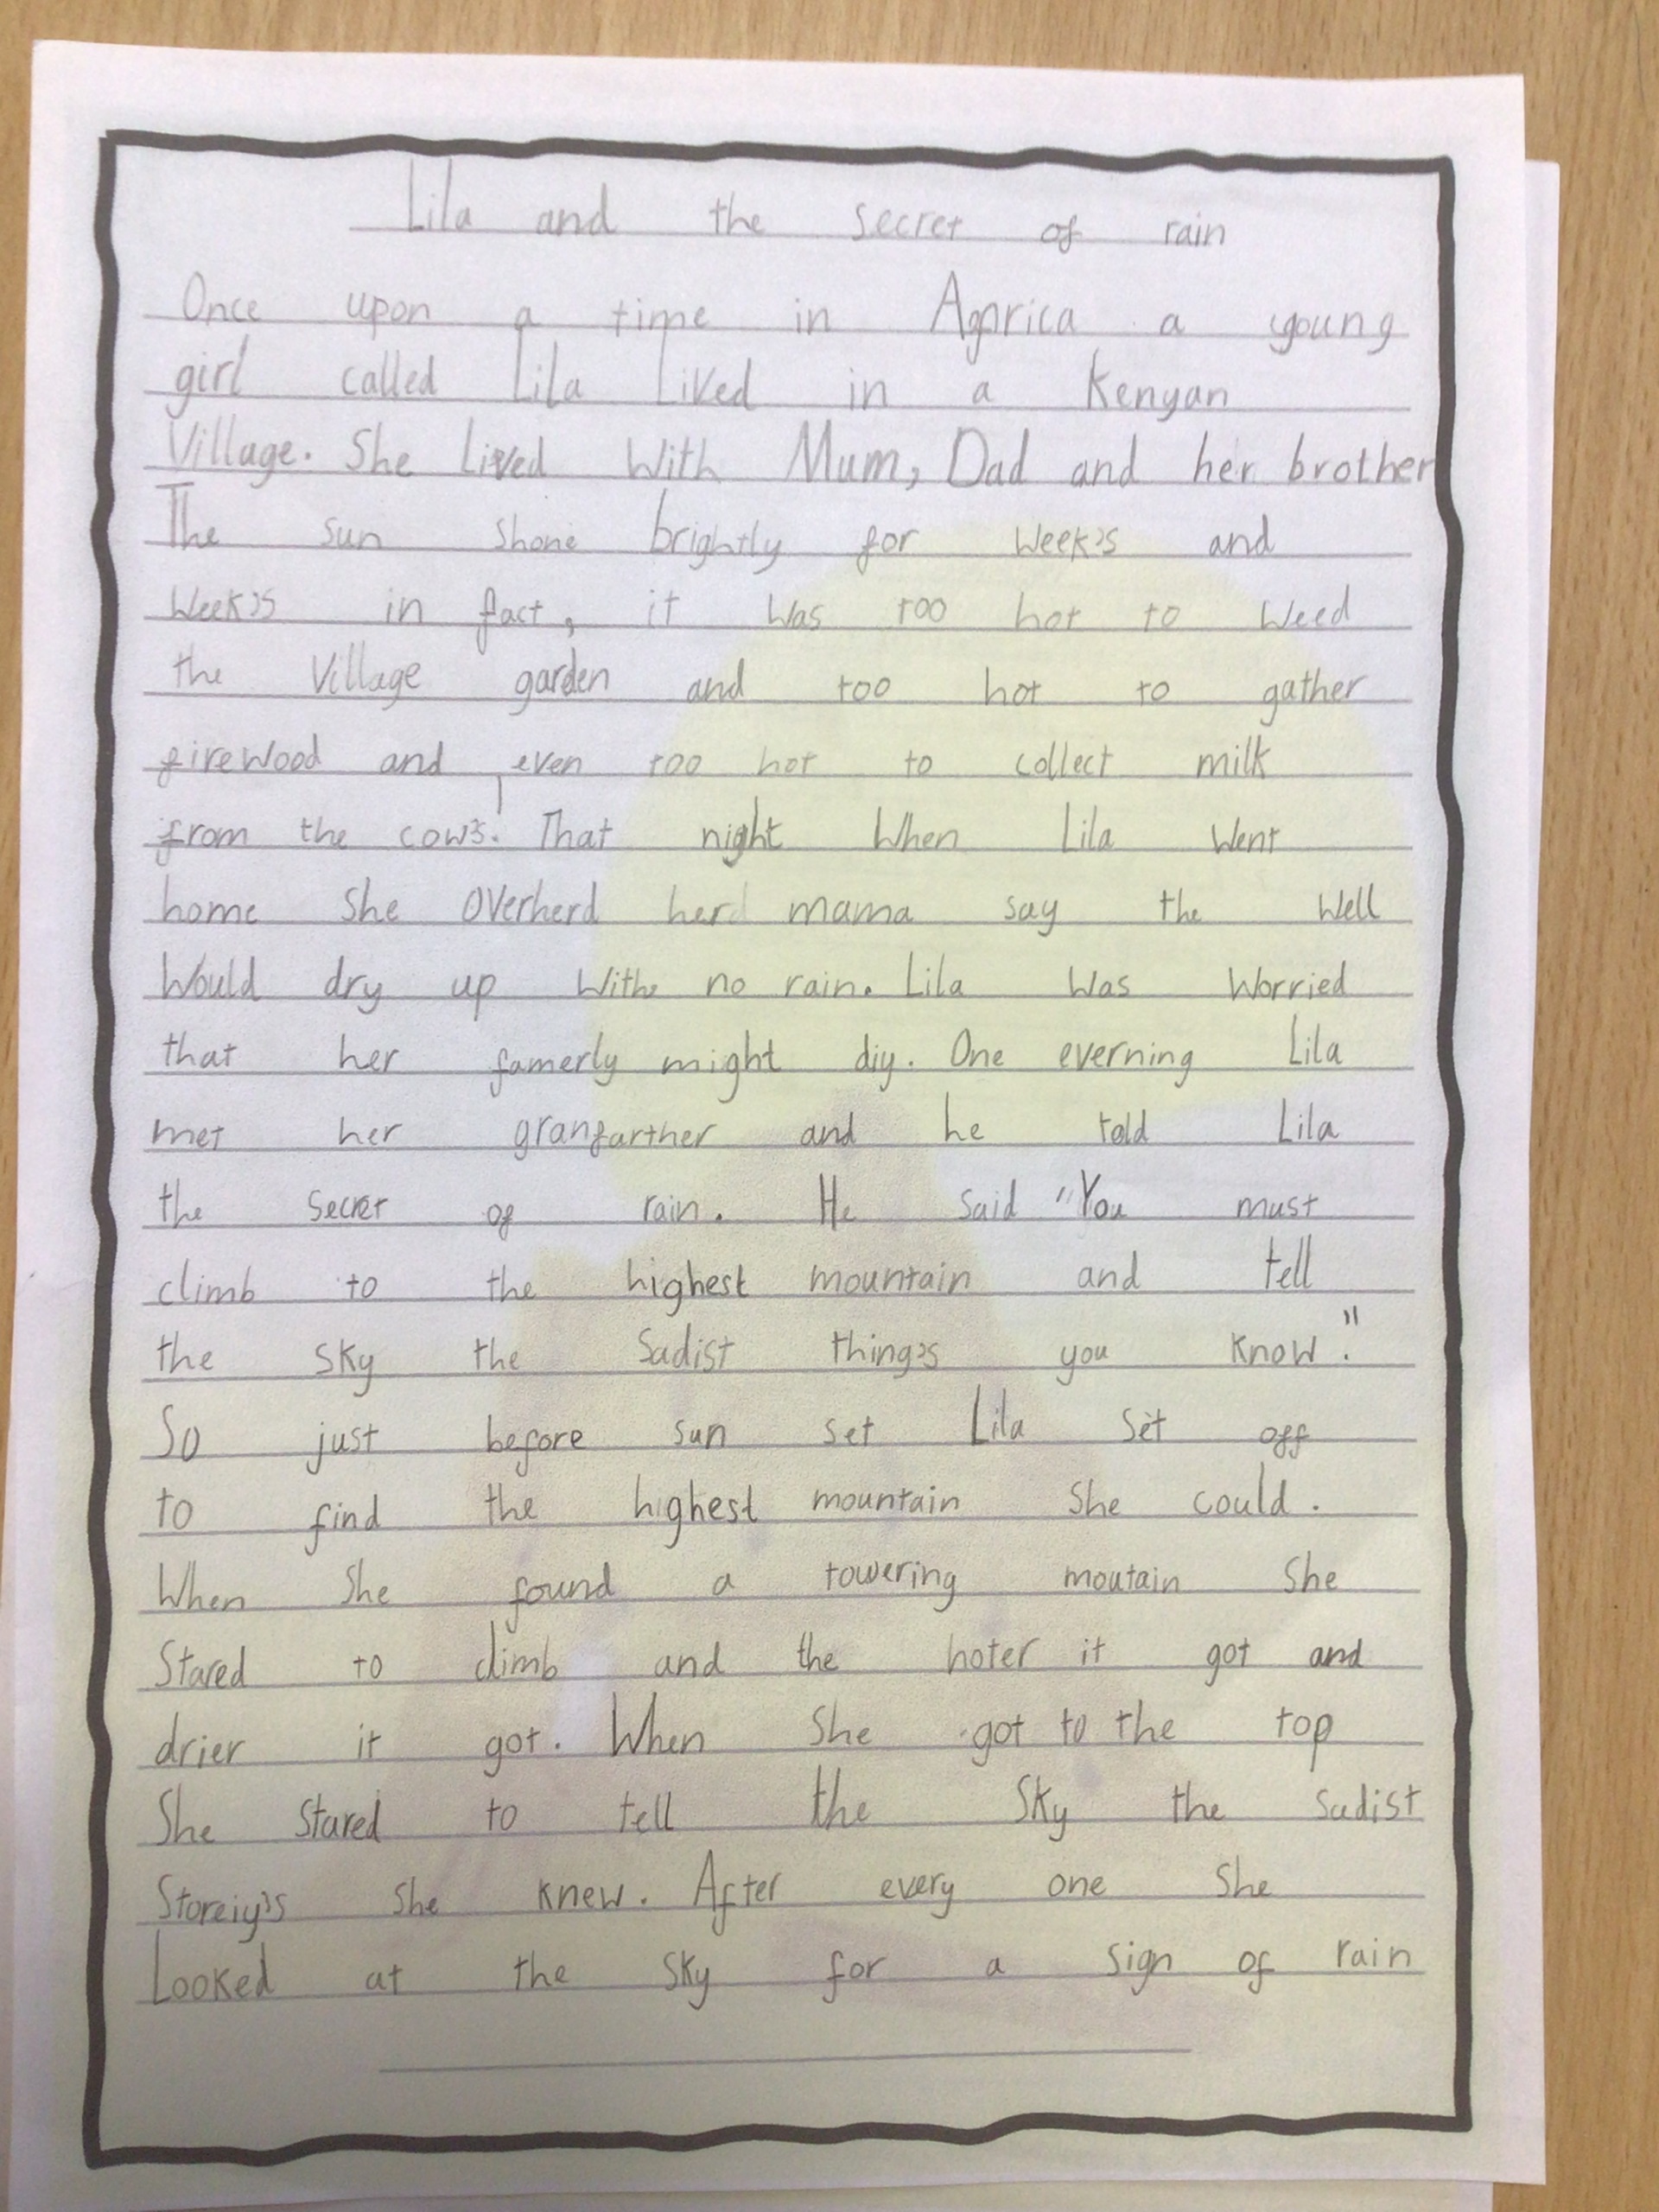 Lila and the secret of rain
Once upon a time in Agprica a young
girl called Lila Lived in a Kenyan
Village. She Lived With Mum, Dad and her brother
The sun shone brightly for Week's and
Week's in fact, it Was too hot to Weed
the Village garden and too hot to gather
fireWood and even too hot to collect milk
from the cow's! That night When Lila Went
home She OVerherd herd mama say the Well
Would dry up Withe no rain. Lila Was Worried
that her famerly might diy. One everning Lila
met her granfarther and he told Lila
the Secret of rain. He Said "You must
climb to the highest mountain and tell
the Sky the Sadist thing's you know."
So just before sun set Lila Set off
to find the highest mountain She could.
When She found a towering moutain She
Stared to climb and the hoter it got and
drier it got. When She got to the top
She Stared to tell the Sky the sadist
Storeiy's She knew. After every one She
Looked at the Sky for a sign of rain